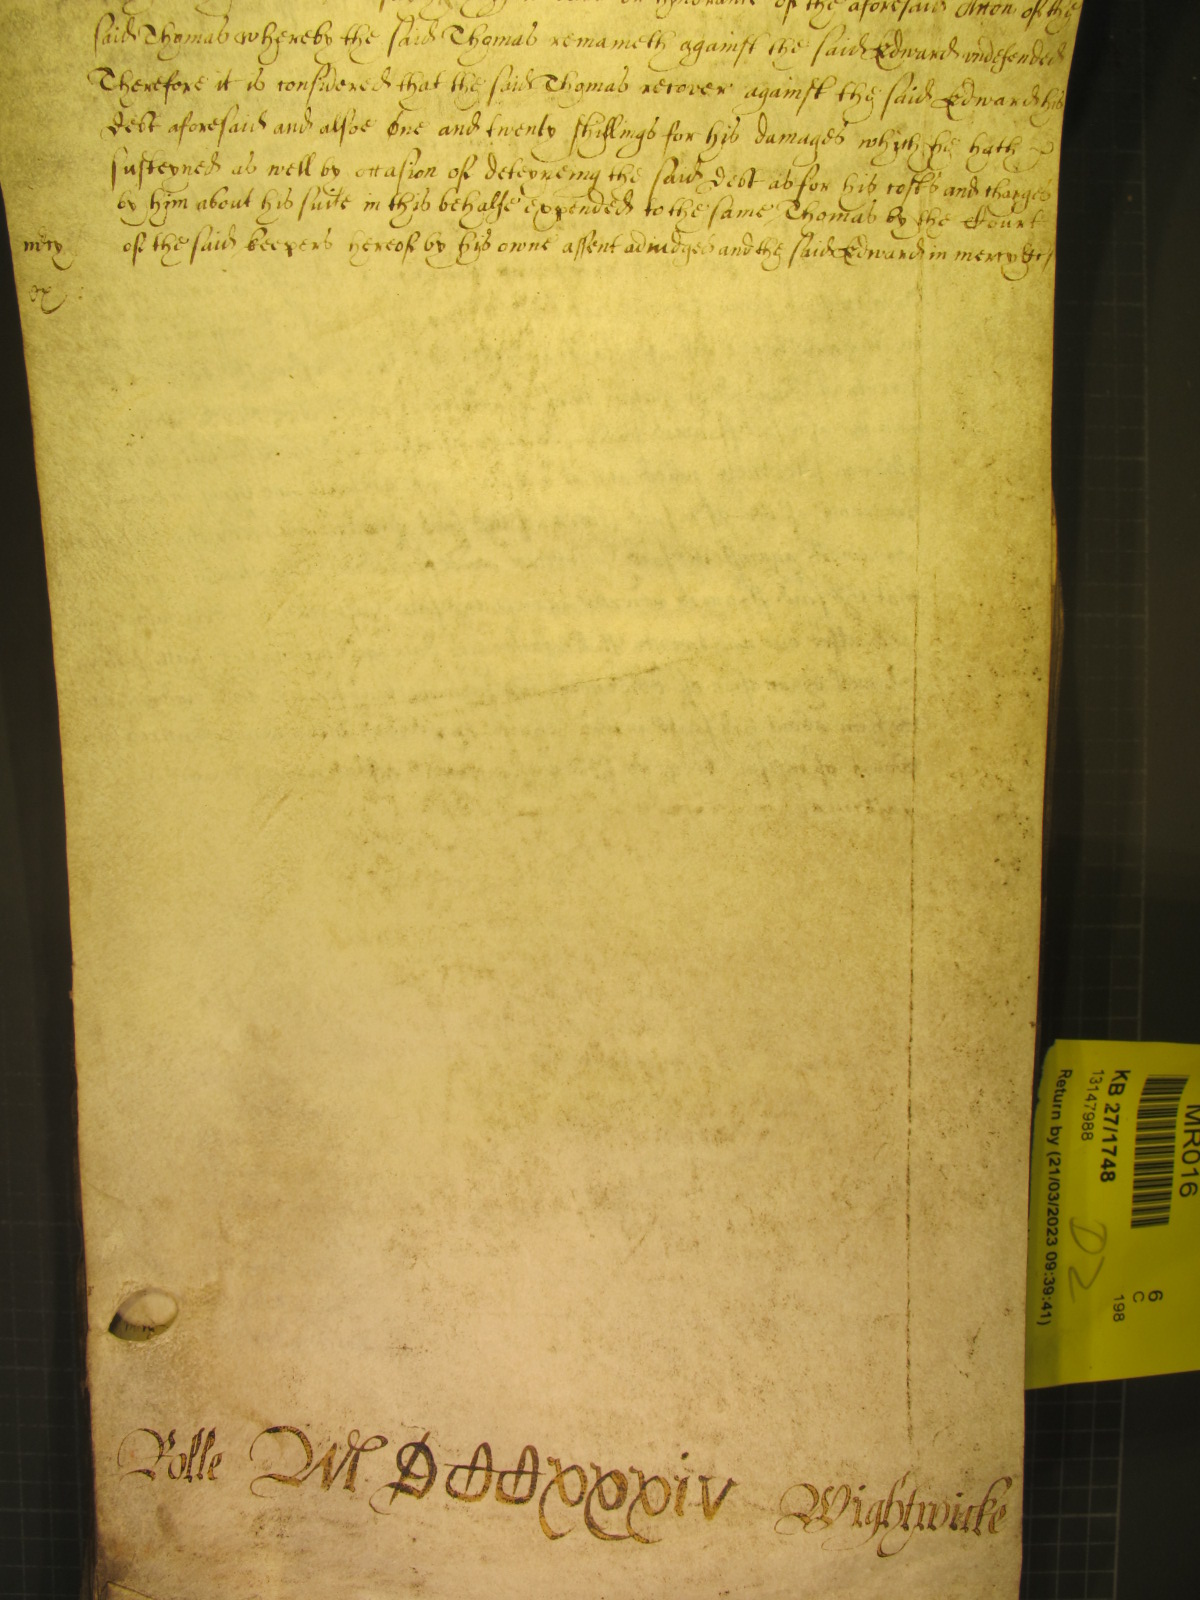 or Ignorance of the aforesaid Attorn of the
said Thomas whereby the said Thomas remaineth against the said Edward undefended
Therefore it is considered that the said Thomas recover against the said Edward his
debt aforesaid and alsoe One and twenty shillings for his damages which he hath
susteyned as well by occasion of deteyneing the said debt as for his costs and charges
by him about his suite in this behalfe expended to the same Thomas by the Court
mercy of the said keepers hereof by his owne assent adiudged and the said Edward in mercy &c /
Rolle M DCCxxxiv Wightwicke
MR016
KB 27/1748
13147988
Return by (21/03/2023 09:39:41)
D2
6
C
198